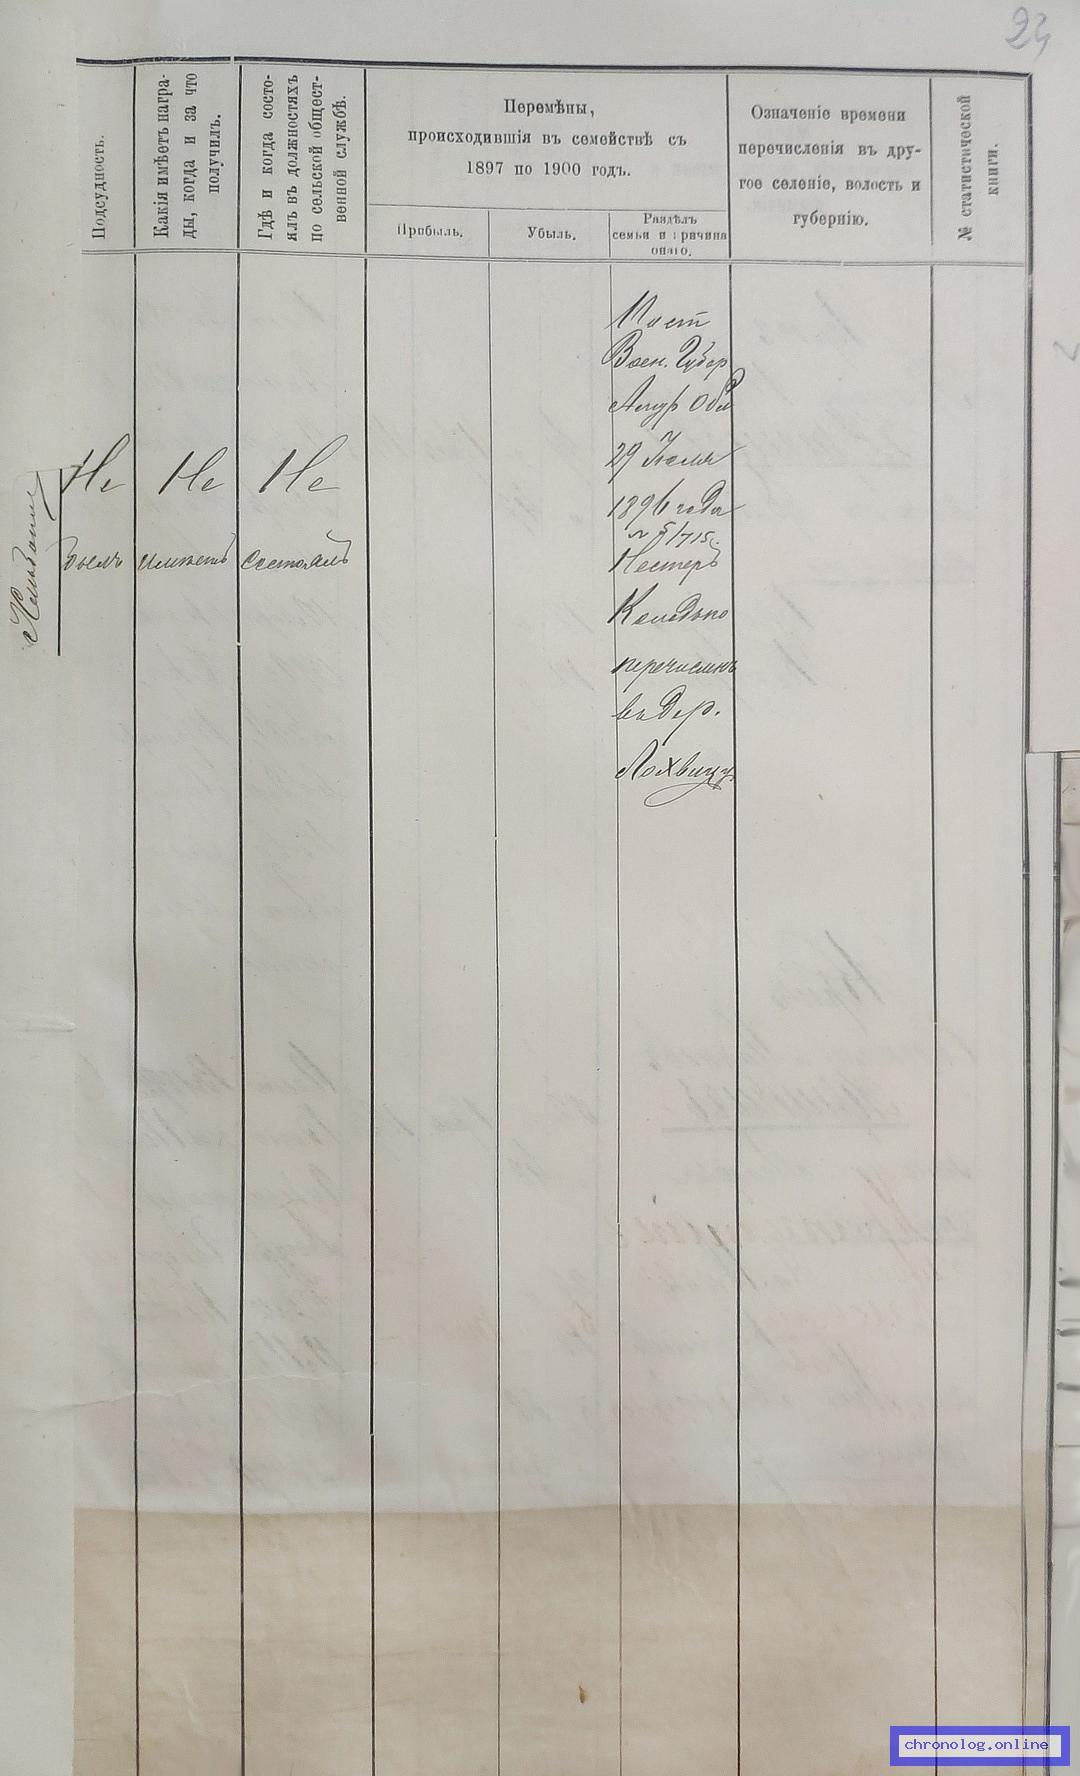 24
Подсудность.
Какія имѣетъ награ-
ды, когда и за что
получилъ.
Гдѣ и когда состо-
ялъ въ должностяхъ
по сельской общест-
венной службѣ.
Перемѣны,
происходившія въ семействѣ съ
1897 по 1900 годъ.
Прибыль.
Убыль.
Раздѣлъ
семьи и причина
онаго.
Означеніе времени
перечисленія въ дру-
гое селеніе, волость и
губернію.
№ статистической
книги.
Не
былъ
Не
имѣетъ
Не
состоялъ
Пост
Воен. Губер
Амур Обл
29 Іюля
1896 года
№ 5/715
Нестеръ
Колядько
перечисленъ
въ дер.
Лохвицу
chronolog.online